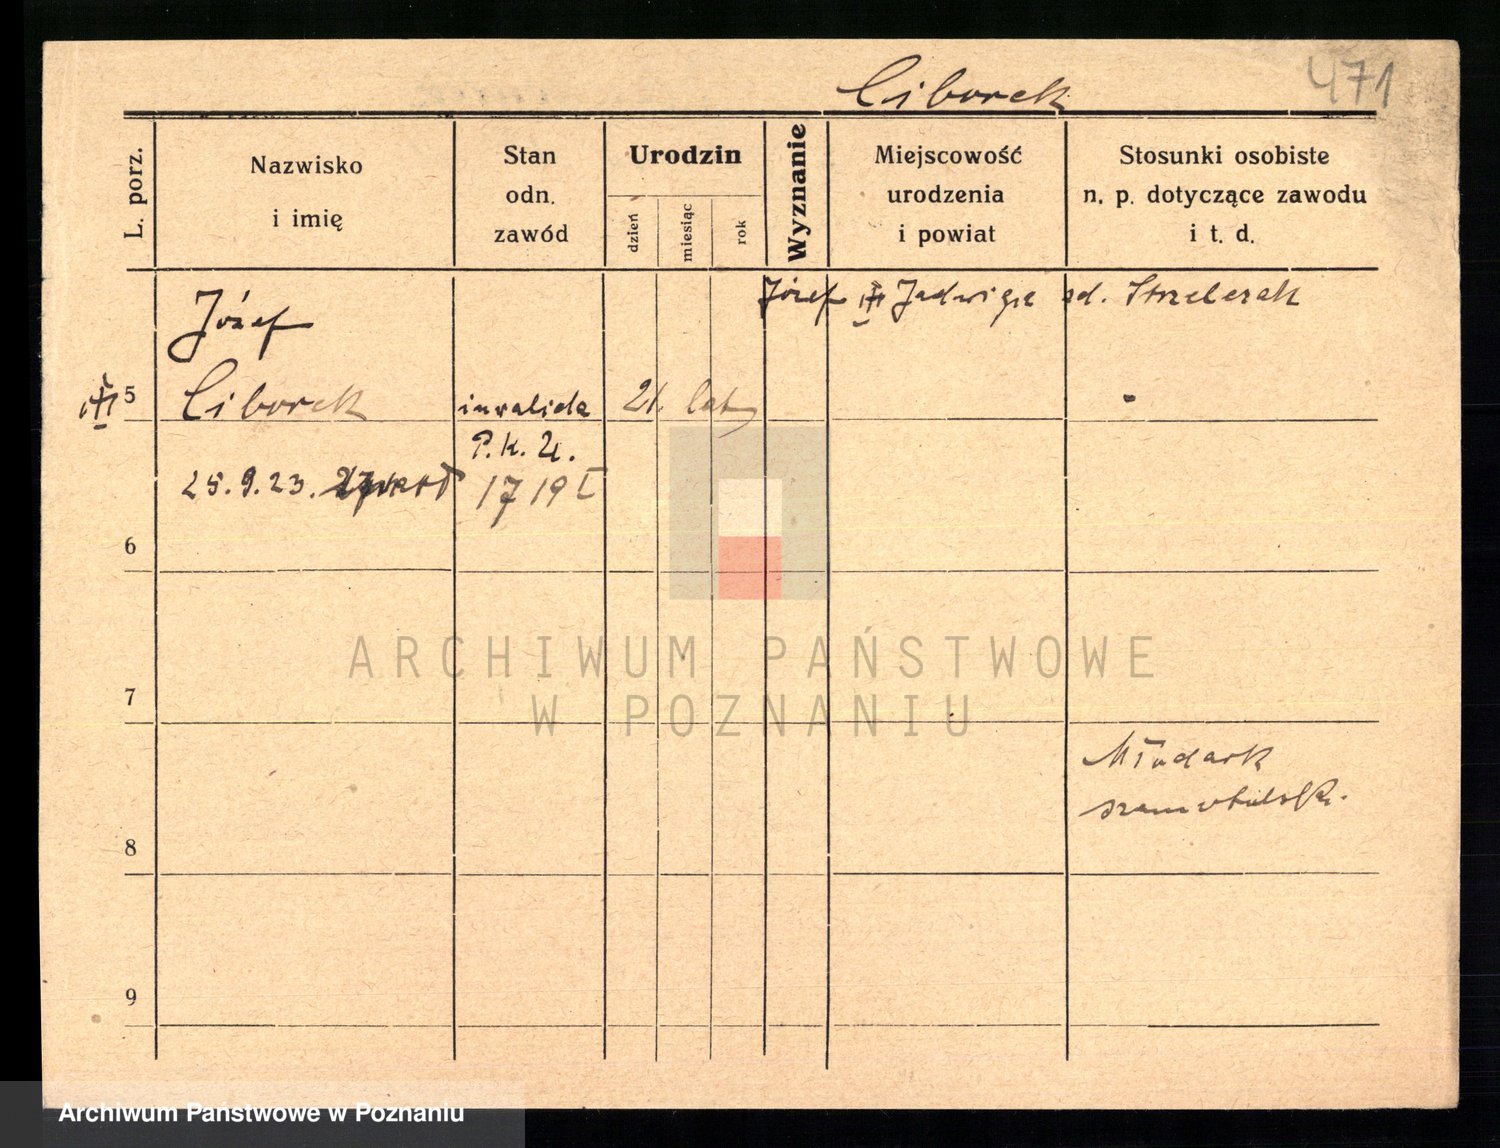 Ciborek
471
L. porz.
Nazwisko
i imię
Stan
odn.
zawód
Urodzin
dzień
miesiąc
rok
Wyznanie
Miejscowość
urodzenia
i powiat
Stosunki osobiste
n. p. dotyczące zawodu
i t. d.
Józef Jadwiga zd. Strzelczak
Józef
5
Ciborek inwalida 21. laty
P.K.U.
25.9.23. 1719 I
6
7
8
9
ARCHIWUM PAŃSTWOWE
W POZNANIU
Archiwum Państwowe w Poznaniu